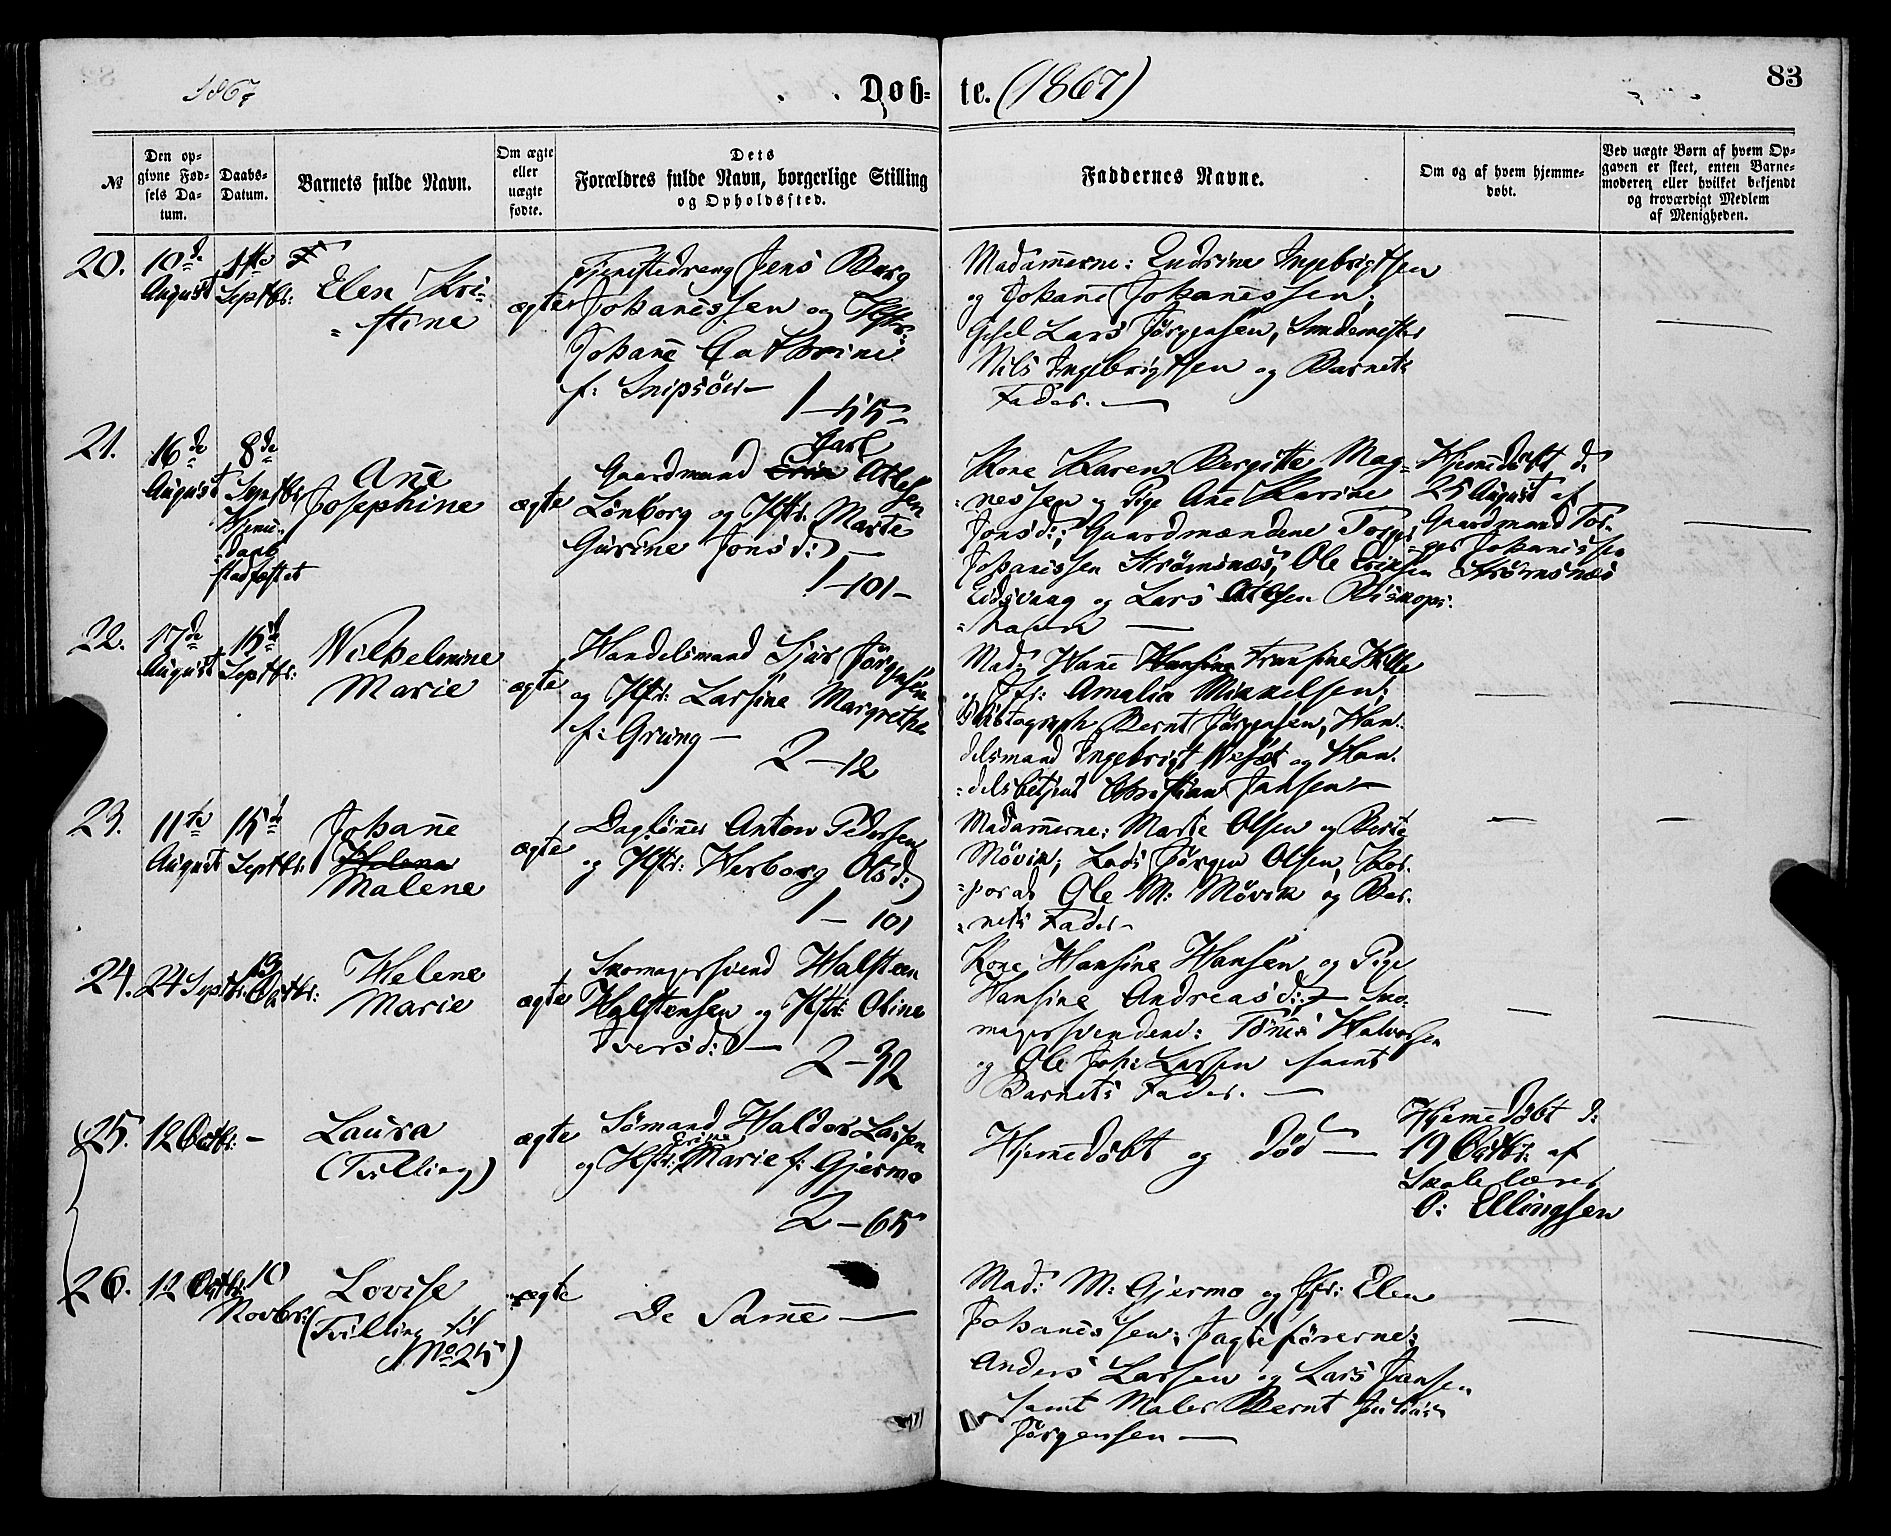 1867
Døb-
te. (1867)
83
№
Den op-
givne Fød-
sels Da-
tum.
Daabs-
Datum.
Barnets fulde Navn.
Om ægte
eller
uægte
fødte.
Dets
Forældres fulde Navn, borgerlige Stilling
og Opholdssted.
Faddernes Navne.
Om og af hvem hjemme-
døbt.
Ved uægte Børn af hvem Op-
gaven er skeet, enten Barne-
moderen eller hvilket bekjendt
og troværdigt Medlem
af Menigheden.
20.
10de
August
1ste
Septbr:
Elen Kri-
stine
ægte
Tjenestedreng Jens Berg
Johanessen og Hstr:
Johanne Cathrine
f: Snipsöir
1-55
Madamerne: Endrine Ingebrigtsen
og Johane Johanessen;
Lars Jørgensen,
Nils Ingebrigtsen og Barnets
Fader.
21.
16de
August
8de
Septbr
Hjemme-
daab
stadfæstet
Ane
Josephine
ægte
Jarl
Gaardmand Erik Atlesen
Lönborg og Hstr: Marte
Gurine Jonsd:
1-101-
Kone Karen Bergitte Mag-
nessen og Pige Ane Karine
Jonsd:; Gaardmændene Torger
Johanessen Strömsnæs, Ole Eriksen
Eidsvaag og Lars Atlesen Biskops-
havn
Hjemmedøbt d.
25 August af
Gaardmand Tor-
ger Johanessen
Strömsnæs
22.
17de
August
15de
Septbr:
Wilhelmine
Marie
ægte
Handelsmand Sjur Jørgensen
og Hstr: Larsine Margrethe
f: Grung
2-12
Mad: Hane Hansine Fransine
og Jfr: Amalia Mikkelsen;
Photograph Bernt Jørgensen, Han-
delsmand Ingebrigt og Han-
delsbetjent Christian Jansen
23.
11te
August
15de
Septbr:
Johanne
Helena
Malene
ægte
Daglönner Anton Pedersen
og Hstr: Herborg Olsd:
1-101
Madamerne: Marte Olsen og Berte
Mövik; Lods Jørgen Olsen, Kor-
poral Ole M: Mövik og Bar-
nets Fader
24.
24 Septbr:
13 Octbr:
Helene
Marie
ægte
Skomagersvend Halsteen
Halstensen og Hstr: Oline
Iversd:
2-32
Kone Hansine Hansen og Pige
Hansine Andreasd:; Sko-
magersvendene: Tönnes Halvorsen
og Ole Joh: Larsen samt
Barnets Fader.
25.
12 Octbr:
Laura
(Tvilling)
ægte
Sömand Haldor Larsen
og Hstr: Marie f: Gjermo
2-65
Hjemmedøbt og död
Hjemmedøbt d:
19 Octbr: af
Skolelærer
O: Ellingsen
26.
12 Octbr:
10
Novbr:
Lovise
(Tvilling til
No 25)
ægte
De Samme
Mad: M: Gjermo og Jfr: Elen
Johanessen; Jagteförerne:
Anders Larsen og Lars Jansen
samt Maler Bernt Julius
Jørgensen